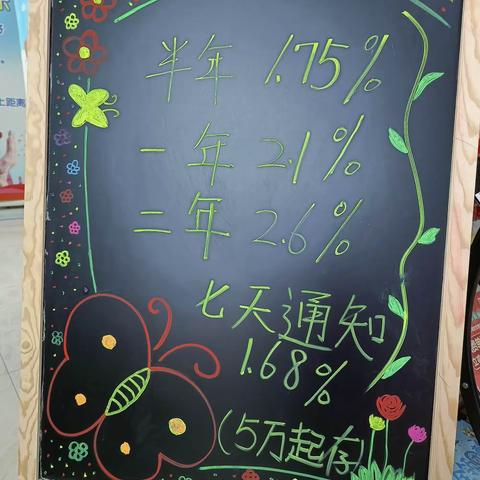 半年 1.75%
一年 2.1%
二年 2.6%
七天通知
1.68%
(5万起存)
上距离